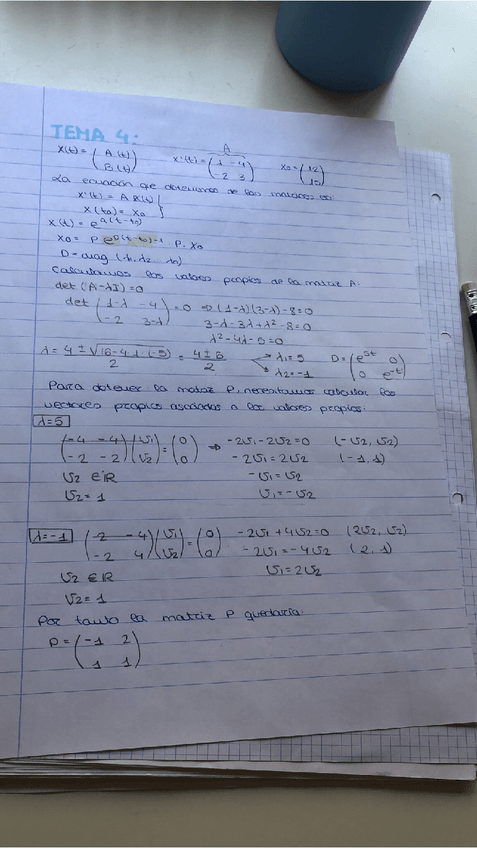 TEMA 4:
X(t) = (A(t) B(t)) x'(t) = (1 -4 -2 3) A x0 = (12 15)
La ecuación que determinamos de las matrices es:
x'(t) = A x(t)
x(t0) = x0
x(t) = e^A(t-t0)
x0 = P e^D(t-t0)-1 · P · x0
D = diag (λ1, λ2 λn)
Calculamos los valores propios de la matriz A:
det (A-λI) = 0
det (1-λ -4 -2 3-λ) = 0 ⇒ (1-λ)(3-λ)-8=0
3-λ-3λ+λ²-8=0
λ²-4λ-5=0
λ = 4 ± √16-4·1·(-5) / 2 = 4 ± 6 / 2 λ1=5 λ2=-1 D = (e^5t 0 0 e^-t)
Para obtener la matriz P, necesitamos calcular los
vectores propios asociados a los valores propios:
λ=5
(-4 -4 -2 -2)(v1 v2) = (0 0) ⇒ -2v1-2v2=0 (-v2, v2)
-2v1=2v2 (-1, 1)
v2 ∈ ℝ -v1=v2
v2=1 v1=-v2
λ=-1 (2 -4 -2 4)(v1 v2) = (0 0) -2v1+4v2=0 (2v2, v2)
-2v1=-4v2 (2, 1)
v2 ∈ ℝ v1=2v2
v2=1
Por tanto la matriz P quedaría:
P = (-1 2 1 1)